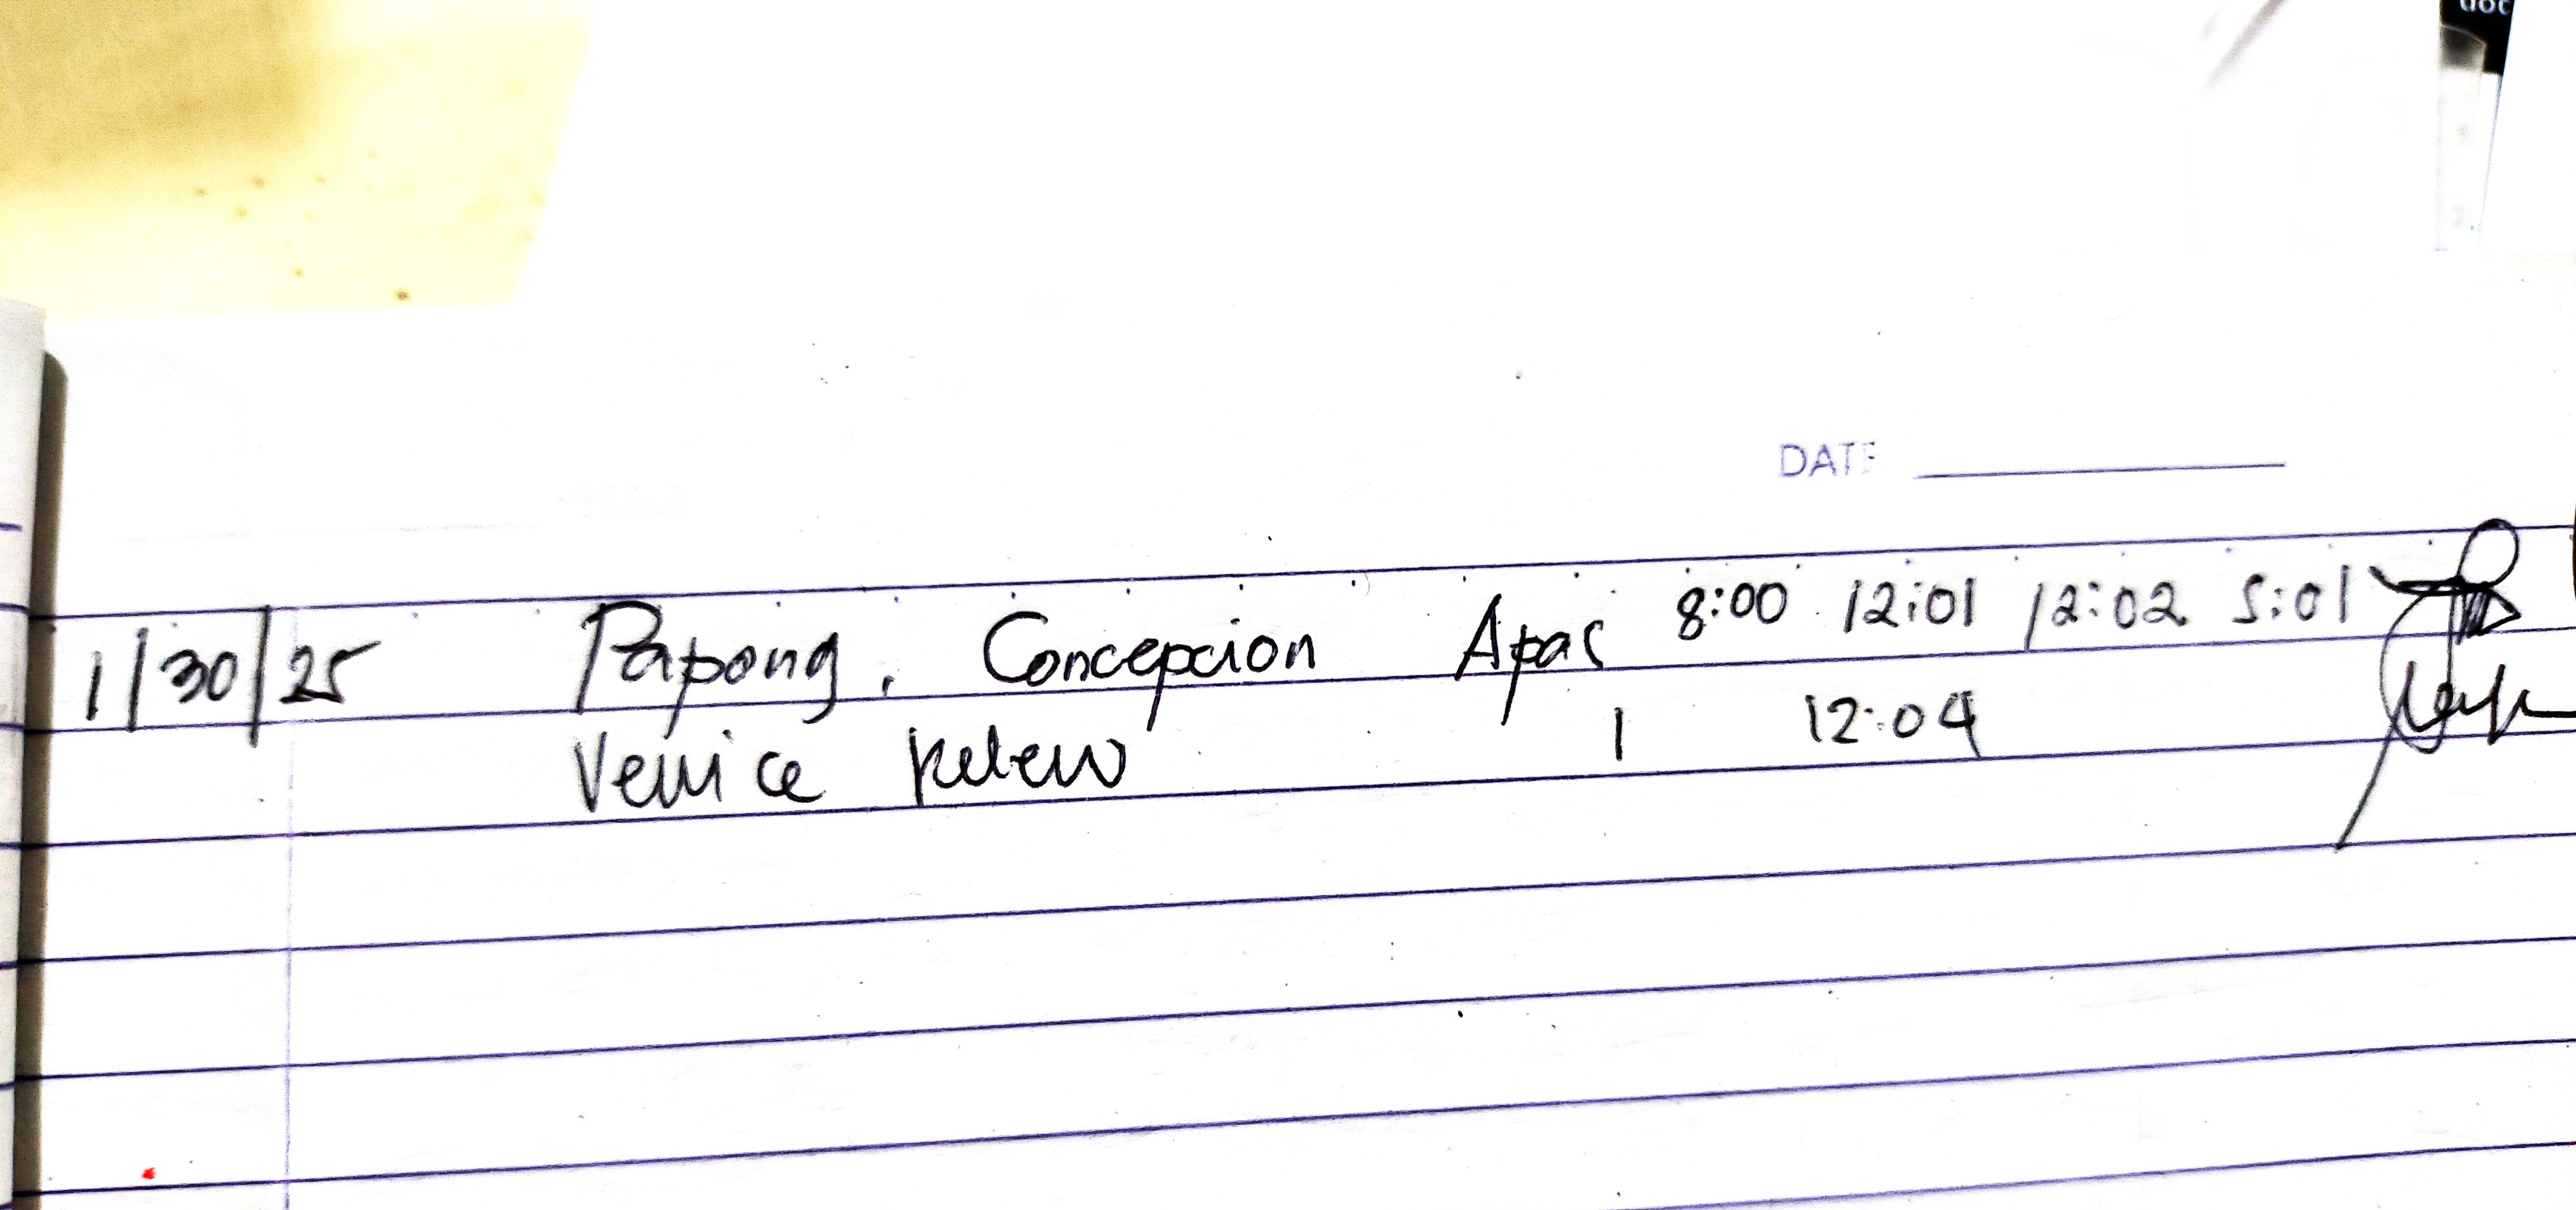 doc
DATE
1/30/25 Papong, Concepcion Apas 8:00 12:01 12:02 5:01
Venice 1 12:04